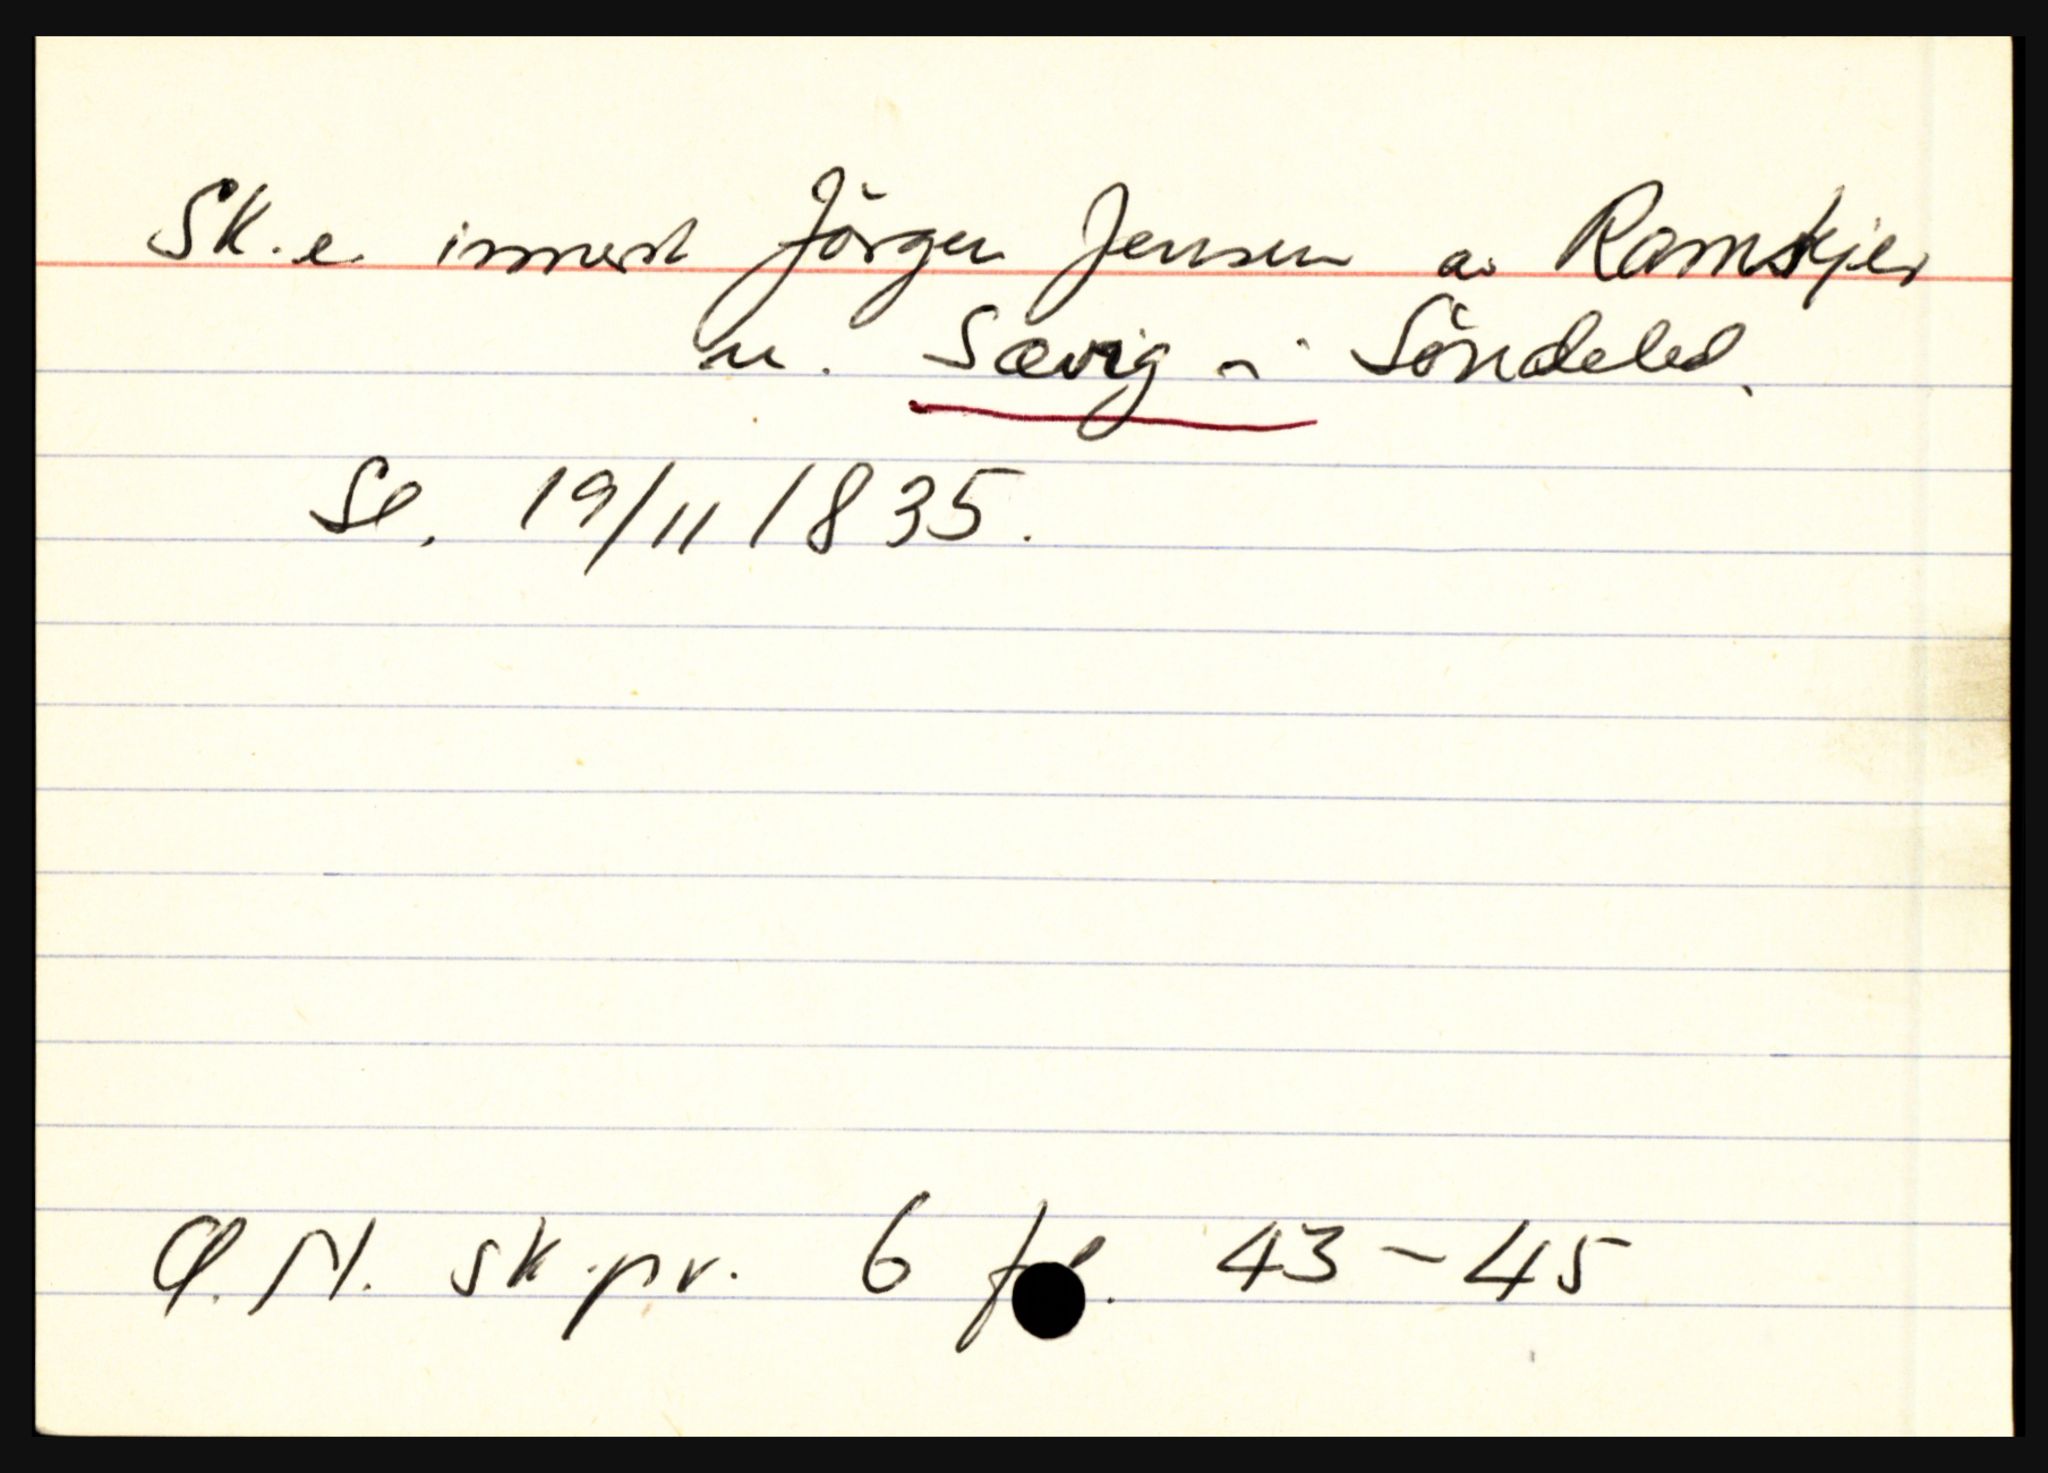 Sk. e. innerst Jörgen Jensen a. Ramskjer
u. Sævig i Söndeled.
Sl. 19/11 1835.
Ø. N. sk.pr. 6 fol. 43-45